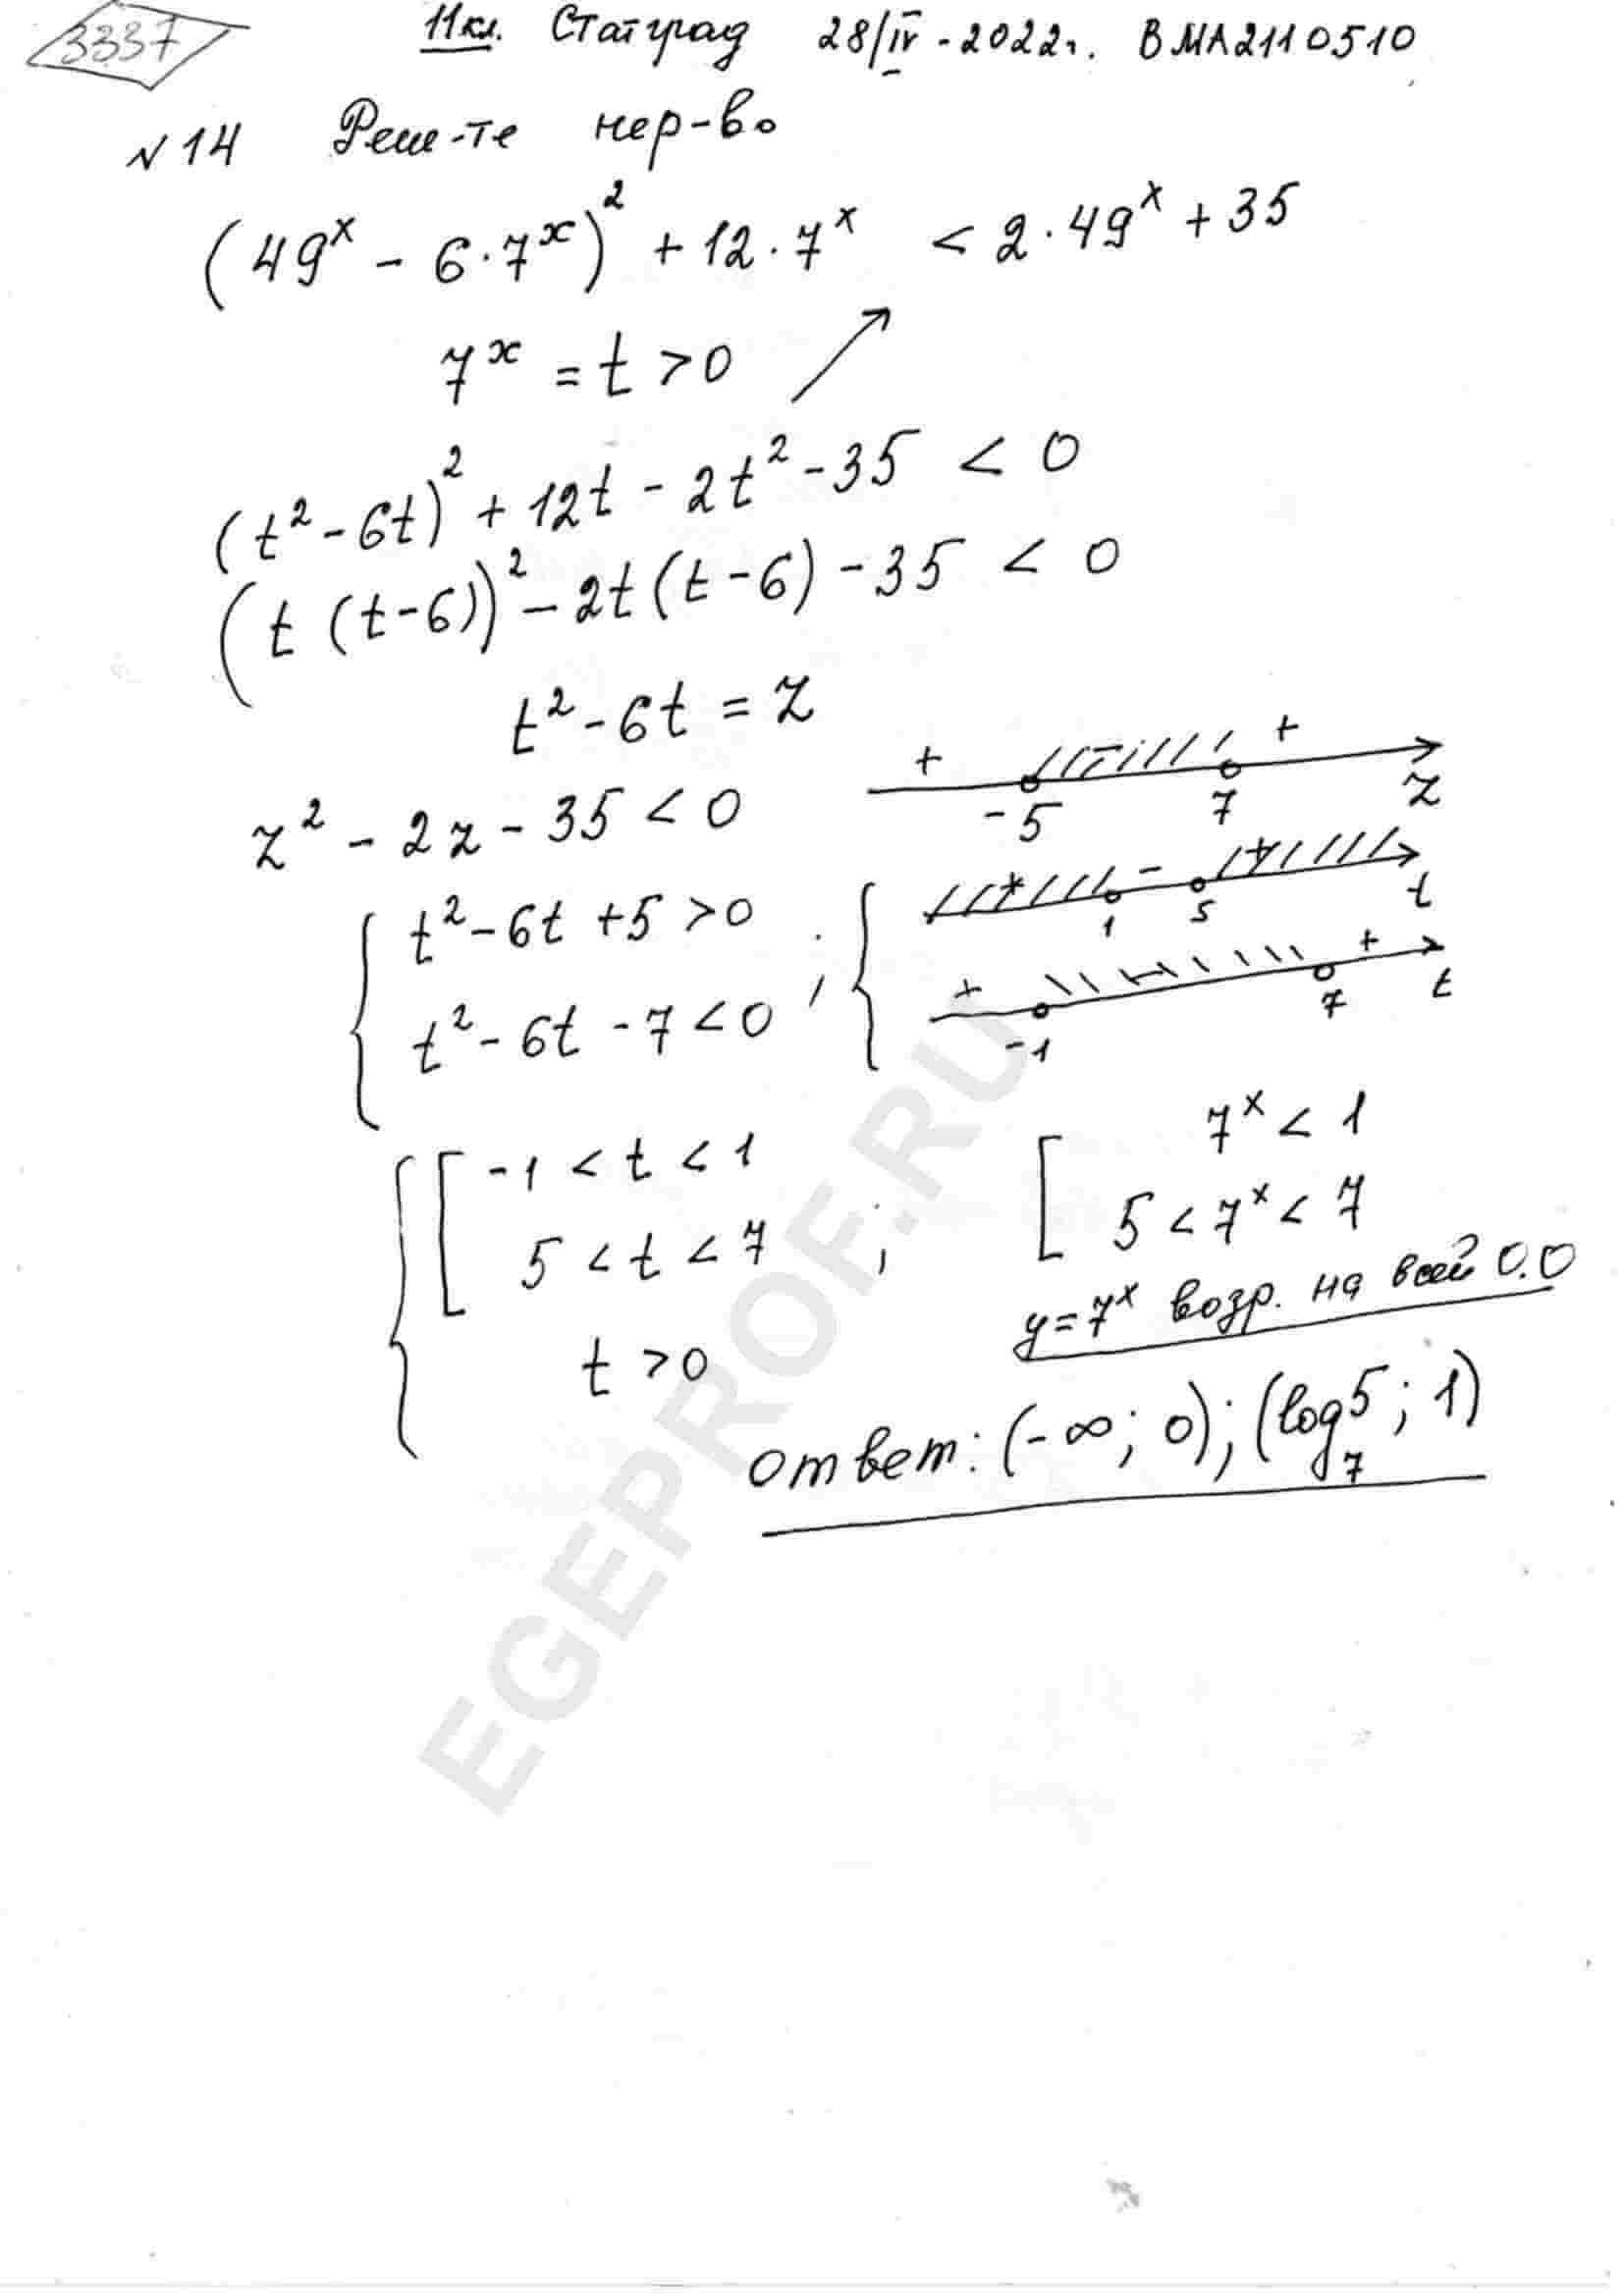 3337
11 кл. Статград 28/IV-2022г. ВМА2110510
№14 Реш-те нер-во
(49^x - 6·7^x)^2 + 12·7^x < 2·49^x + 35
7^x = t > 0
(t^2 - 6t)^2 + 12t - 2t^2 - 35 < 0
(t(t-6))^2 - 2t(t-6) - 35 < 0
t^2 - 6t = z
+ - +
-5 7 z
z^2 - 2z - 35 < 0
{ t^2 - 6t + 5 > 0
t^2 - 6t - 7 < 0 ;
{ + - +
1 5 t
+ - +
-1 7 t
{ [ -1 < t < 1
5 < t < 7 ;
t > 0
[ 7^x < 1
5 < 7^x < 7
y = 7^x возр. на всей О.О
ответ: (-∞; 0); (log_7 5; 1)
EGEPROF.RU